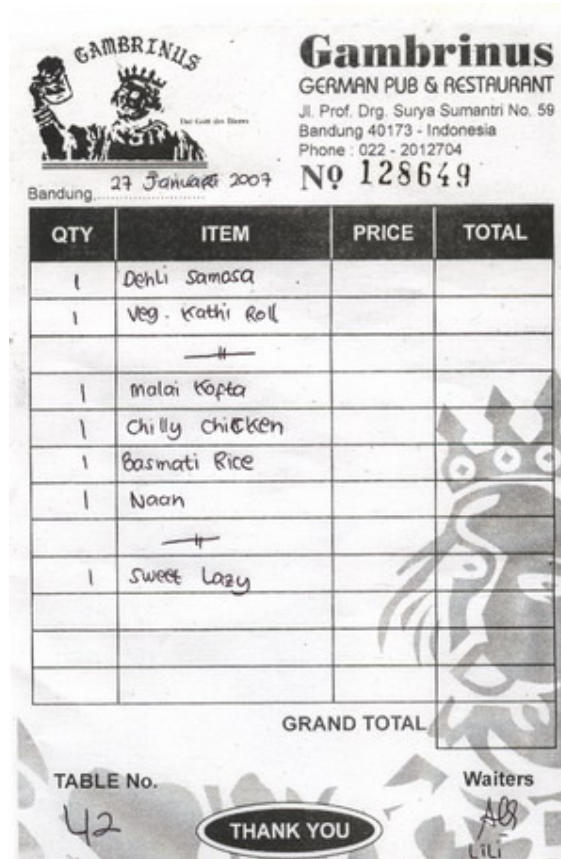 GAMBRINUS
Der Gott des Bieres
Gambrinus
GERMAN PUB & RESTAURANT
Jl. Prof. Drg. Surya Sumantri No. 59
Bandung 40173 - Indonesia
Phone : 022 - 2012704
Nº 128649
Bandung, 27 Januari 2007
QTY ITEM PRICE TOTAL
1 Dehli Samosa
1 Veg. Kathi Roll
1 Malai Kopta
1 Chilly Chicken
1 Basmati Rice
1 Naan
1 Sweet Lazy
GRAND TOTAL
TABLE No. Waiters
42
THANK YOU
LILI